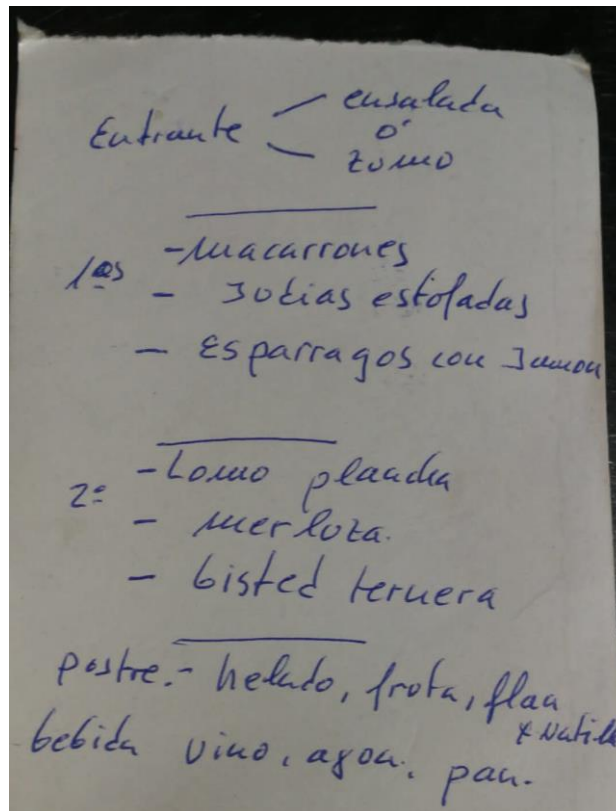 Entrante ensalada
ó
zumo
1ºs - Macarrones
- Judias estofadas
- Esparragos con Jamon
2º - Lomo plancha
- merluza.
- bisted ternera
postre.- helado, fruta, flan
y Natill
bebida vino, agua, pan.